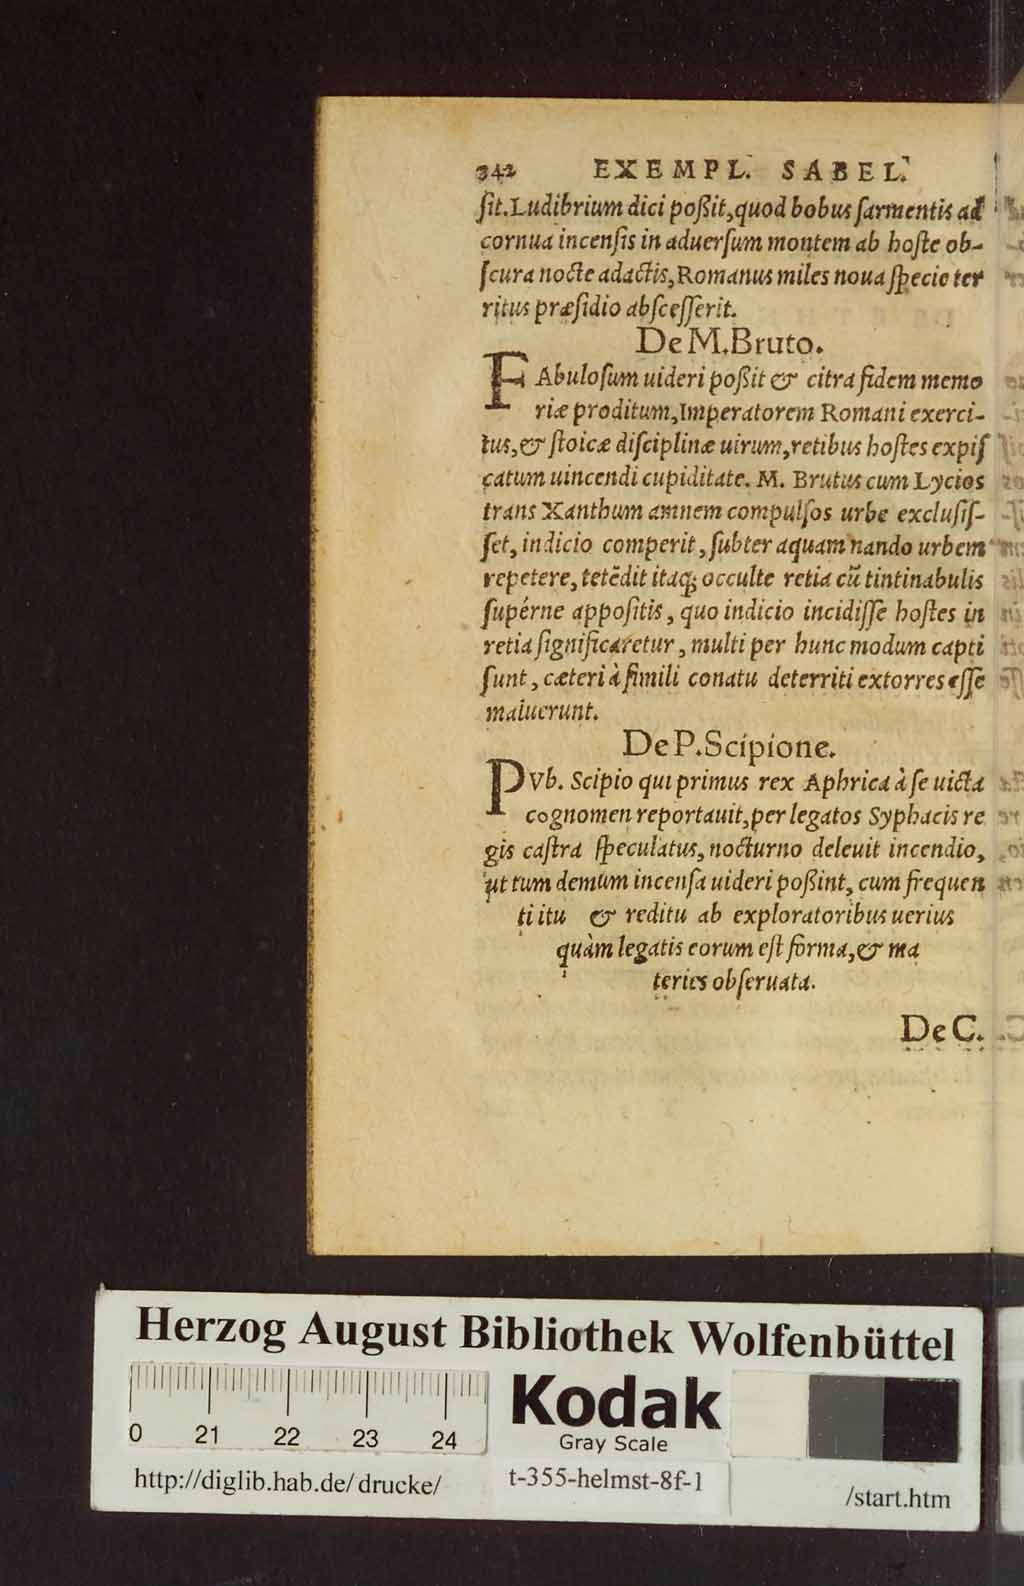 342 EXEMPL. SABEL.
ſit. Ludibrium dici poßit, quod bobus ſarmentis ad
cornua incenſis in aduerſum montem ab hoſte ob-
ſcura nocte adactis, Romanus miles noua ſpecie ter
ritus præſidio abſceſſerit.
De M. Bruto.
FAbuloſum uideri poßit & citra fidem memo
riæ proditum, Imperatorem Romani exerci-
tus, & ſtoicæ diſciplinæ uirum, retibus hoſtes expiſ
catum uincendi cupiditate. M. Brutus cum Lycios
trans Xanthum amnem compulſos urbe excluſiſ-
ſet, indicio comperit, ſubter aquam nando urbem
repetere, tetēdit itaq; occulte retia cū tintinabulis
ſupérne appoſitis, quo indicio incidiſſe hoſtes in
retia ſignificaretur, multi per hunc modum capti
ſunt, cæteri à ſimili conatu deterriti extorres eſſe
maluerunt.
De P. Scipione.
PVb. Scipio qui primus rex Aphrica à ſe uicta
cognomen reportauit, per legatos Syphacis re
gis caſtra ſpeculatus, nocturno deleuit incendio,
ut tum demùm incenſa uideri poßint, cum frequen
ti itu & reditu ab exploratoribus uerius
quàm legatis eorum eſt forma, & ma
teries obſeruata.
De C.
Herzog August Bibliothek Wolfenbüttel
0 21 22 23 24
Kodak
Gray Scale
http://diglib.hab.de/drucke/ t-355-helmst-8f-1 /start.htm